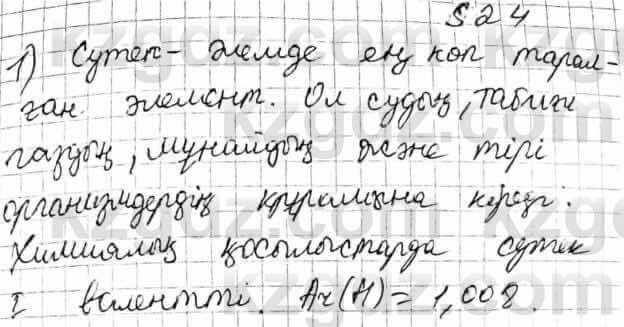 § 24
1) Сутек - әлемде ең көп тарал-
ған элемент. Ол судың, табиғи
газдың, мұнайдың және тірі
организмдердің құрамына кіреді.
Химиялық қосылыстарда сутек
I валентті. Ar(H) = 1,008.